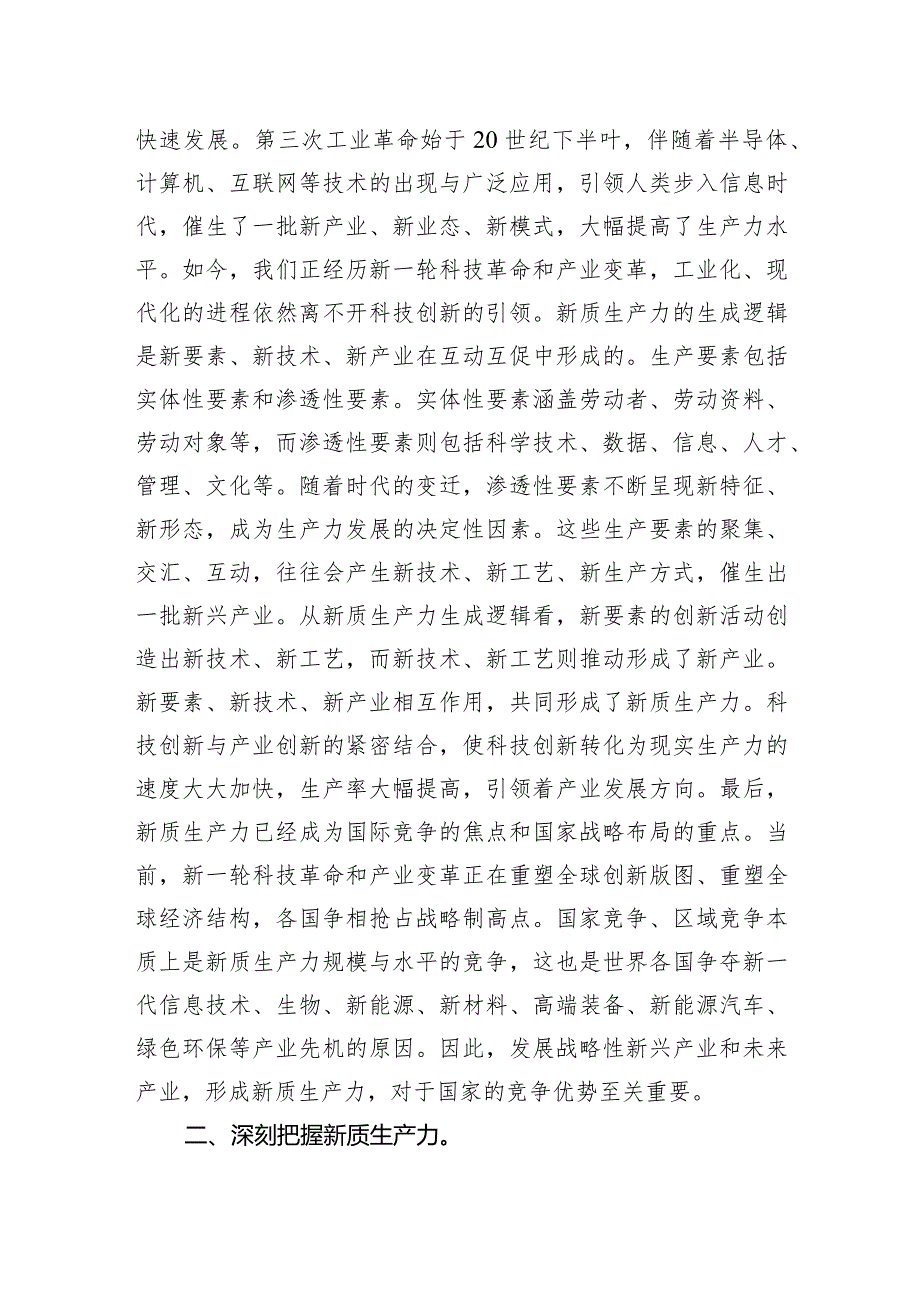 快速发展。第三次工业革命始于 20 世纪下半叶，伴随着半导体、
计算机、互联网等技术的出现与广泛应用，引领人类步入信息时
代，催生了一批新产业、新业态、新模式，大幅提高了生产力水
平。如今，我们正经历新一轮科技革命和产业变革，工业化、现
代化的进程依然离不开科技创新的引领。新质生产力的生成逻辑
是新要素、新技术、新产业在互动互促中形成的。生产要素包括
实体性要素和渗透性要素。实体性要素涵盖劳动者、劳动资料、
劳动对象等，而渗透性要素则包括科学技术、数据、信息、人才、
管理、文化等。随着时代的变迁，渗透性要素不断呈现新特征、
新形态，成为生产力发展的决定性因素。这些生产要素的聚集、
交汇、互动，往往会产生新技术、新工艺、新生产方式，催生出
一批新兴产业。从新质生产力生成逻辑看，新要素的创新活动创
造出新技术、新工艺，而新技术、新工艺则推动形成了新产业。
新要素、新技术、新产业相互作用，共同形成了新质生产力。科
技创新与产业创新的紧密结合，使科技创新转化为现实生产力的
速度大大加快，生产率大幅提高，引领着产业发展方向。最后，
新质生产力已经成为国际竞争的焦点和国家战略布局的重点。当
前，新一轮科技革命和产业变革正在重塑全球创新版图、重塑全
球经济结构，各国争相抢占战略制高点。国家竞争、区域竞争本
质上是新质生产力规模与水平的竞争，这也是世界各国争夺新一
代信息技术、生物、新能源、新材料、高端装备、新能源汽车、
绿色环保等产业先机的原因。因此，发展战略性新兴产业和未来
产业，形成新质生产力，对于国家的竞争优势至关重要。
二、深刻把握新质生产力。